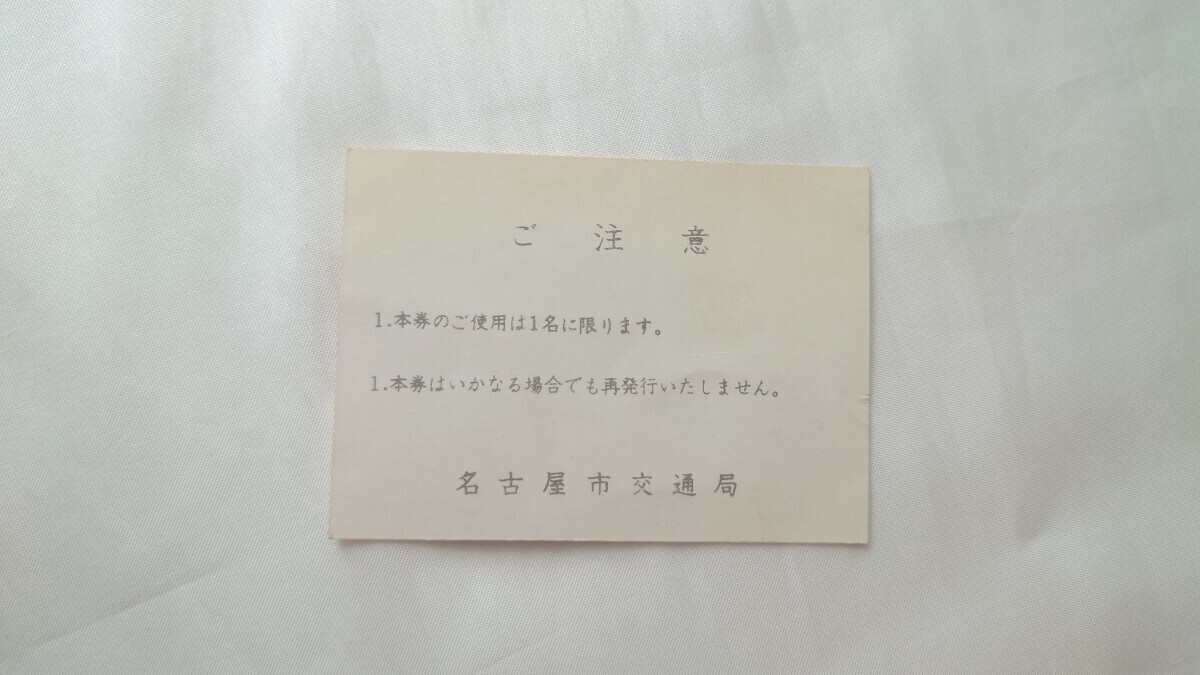 ご注意
1.本券のご使用は1名に限ります。
1.本券はいかなる場合でも再発行いたしません。
名古屋市交通局